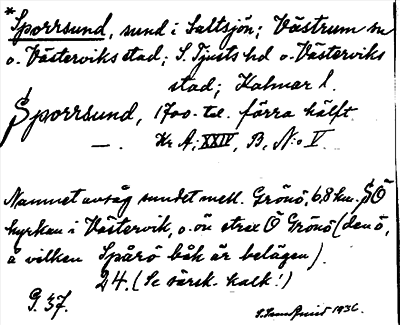 *Sporrsund, sund i Saltsjön; Västrum sn
o. Västerviks stad; S. Tjusts hd o. Västerviks
stad; Kalmar l.
Sporrsund, 1700-tal. förra hälft.
— Kr A; XXIV, B, N:o V.
Namnet avsåg sundet mell. Grönö, 6,8 km. SÖ
kyrkan i Västervik, o. ön strax Ö Grönö (den ö,
å vilken Spårö båk är belägen).
24. (Se särsk. kalk!)
G. 37.
1936.